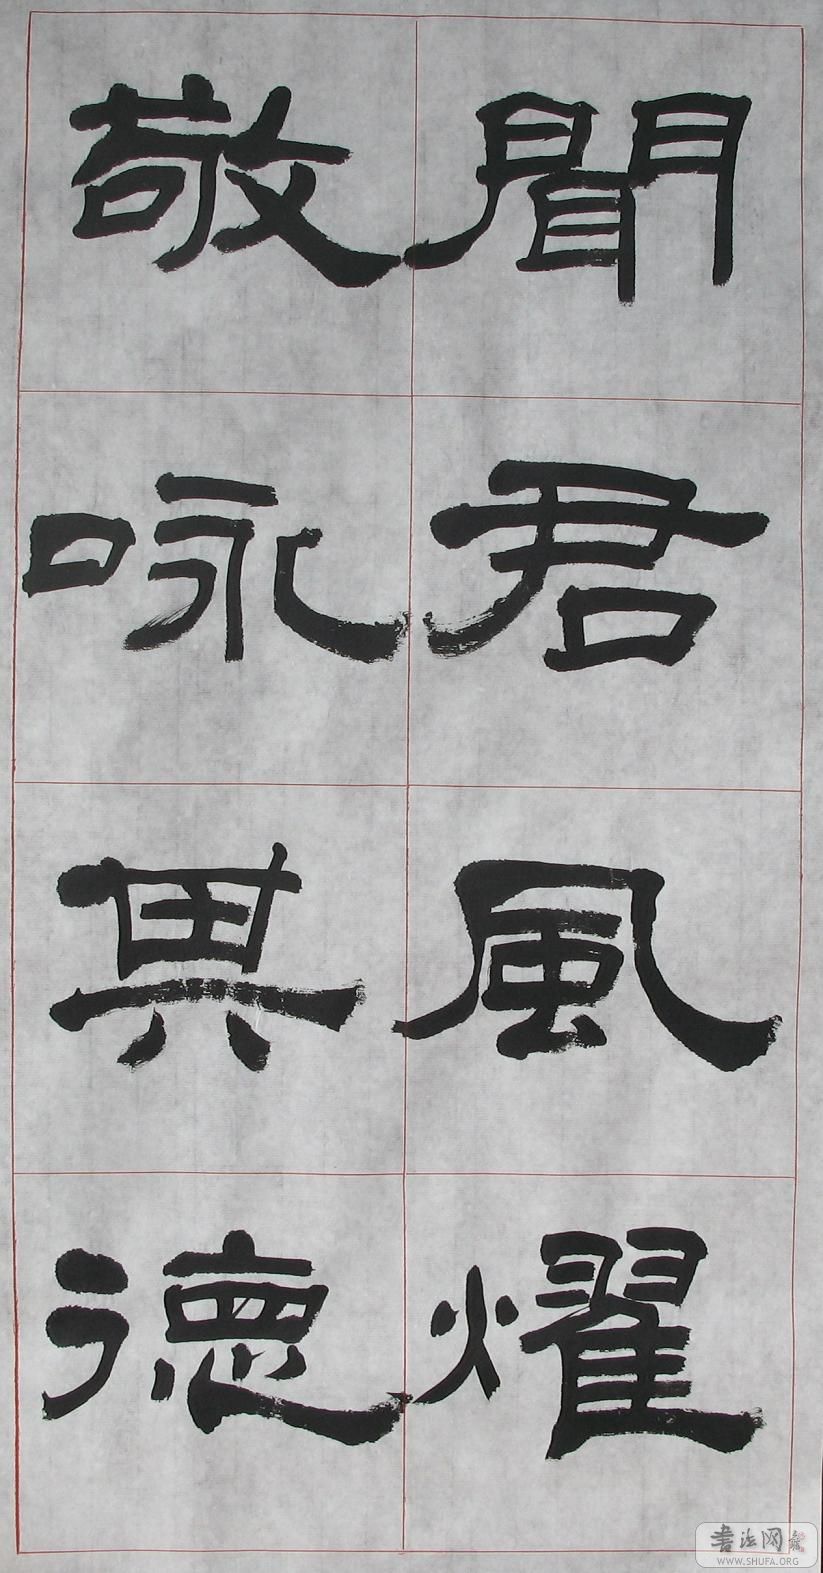 聞君風燿
敬咏其德
书法网
WWW.SHUFA.ORG